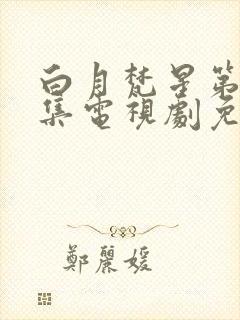 白月梵星第
集電視劇免
鄭麗媛